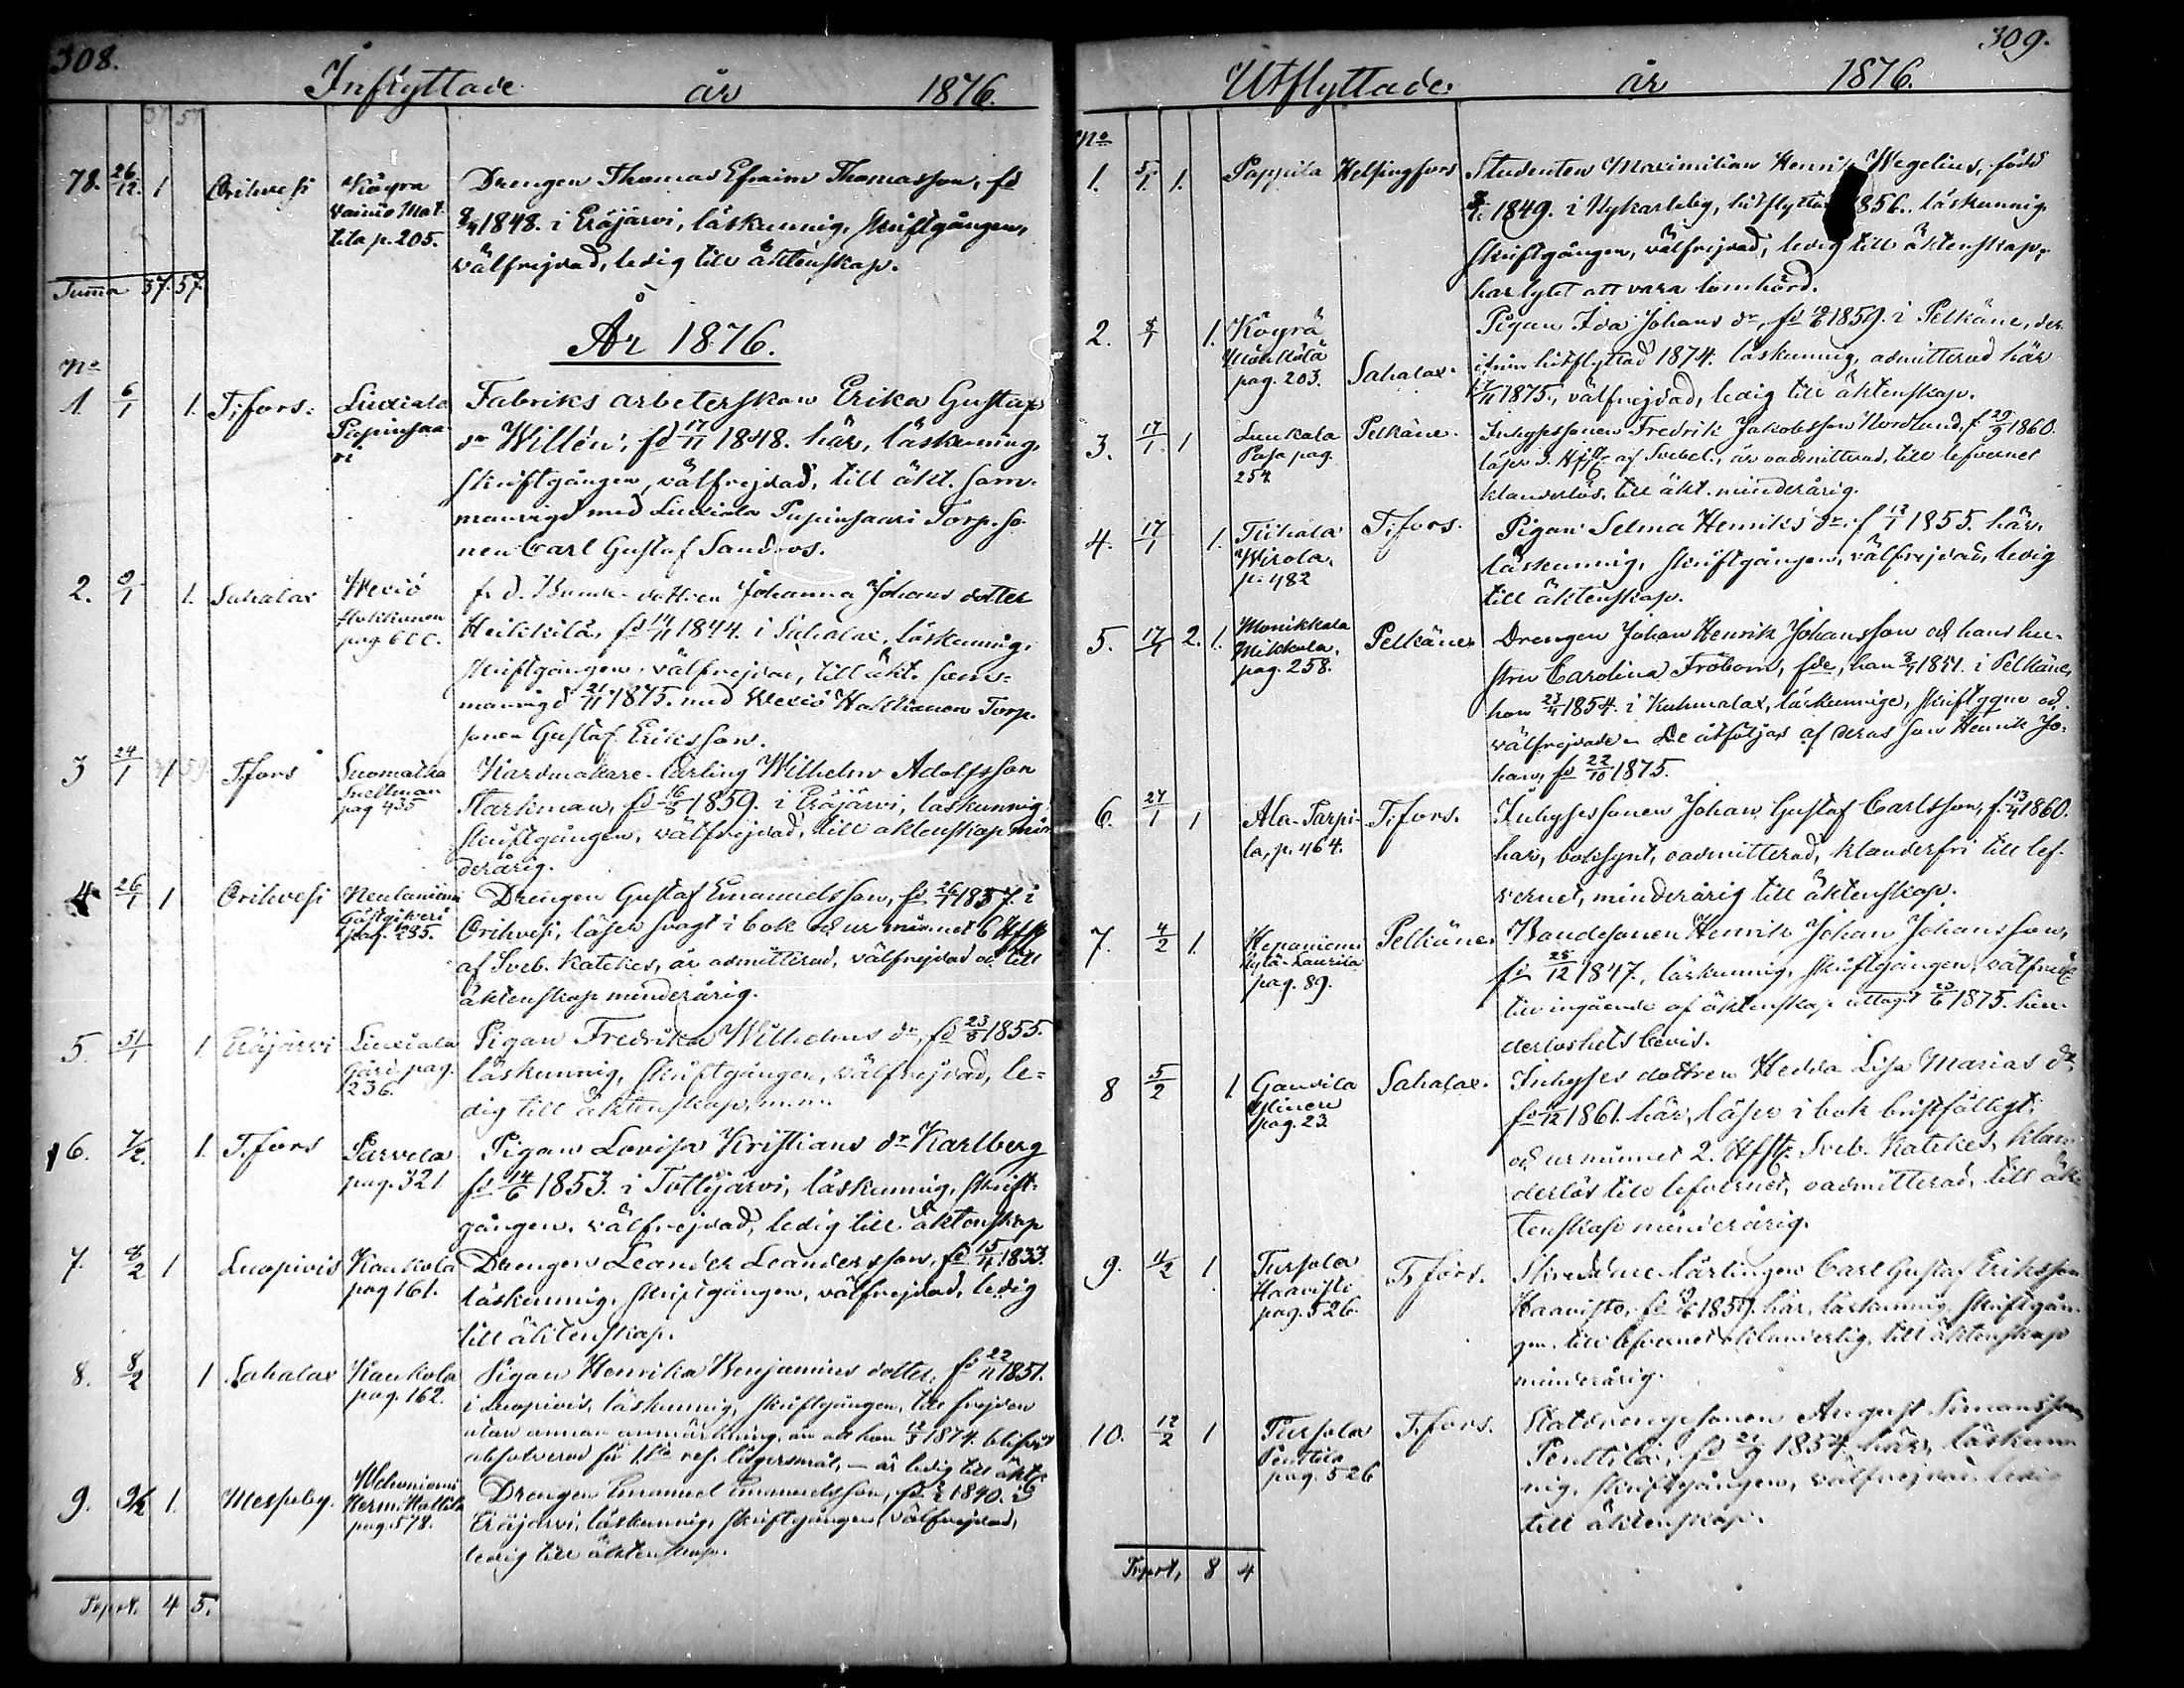 308.
Inflyttade år 1876.
78. 26/12. 1 Orihvesi Köyrä Drengen Thomas Efraim Thomasson, fd
Vainio Mat- 1848. i Eräjärvi, läskunnig, skriftgången,
tila p. 205. välfrejdad, ledig till äktenskap.
Summa 37. 57.
År 1876.
No
1. 6/1 1. T:fors. Liuxiala Fabriks arbeterskan Erika Gustafs
Pispinsaa- dr Willén, fd 17/11 1848. här, läskunnig,
ri skriftgången, välfrejdad, till äkt. sam-
manvigd med Liuxiala Torp.so-
nen Carl Gustaf Sandroos.
2. 1. Sahalax Wexiö f. d. Bonde dottren Johanna Johans dotter
Hakkonen Heikkilä, fd 14/11 1844. i Sahalax, läskunnig,
pag. 600. skriftgången, välfrejdad, till äkt. sam-
manvigd 21/11 1875. med Wexiö Hakkonen Torp-
sonen Gustaf Eriksson.
3 24/1 1 T.fors Suomatka Kardmakare-lärling Wilhelm Adolfsson
Snellman Starkman, fd 16/5 1859. i Eräjärvi, läskunnig,
pag 435 skriftgången, välfrejdad, till äktenskap min-
derårig.
4 26/1 1 Orihvesi Neulaniemi Drengen Gustaf Emanuelsson, fd 26/1 1857. i
Gästgiveri Orihvesi, läser svagt i bok od ur minnet 6 Hfst
pag. 285. af Sveb. Katekes, är admitterad, välfrejdad od till
äktenskap minderårig.
5. 31/1 1. Eräjärvi Liuxiala Pigan Fredrika Wilhelms dr, fd 23/8 1855.
Gård pag. läskunnig, skriftgången, välfrejdad, le-
236. dig till äktenskap,
6. 7/2. 1. T.fors Sarvela Pigan Lovisa Kristians dr Karlberg
pag. 321 fd 14/6 1853. i Tottijärvi, läskunnig, skrift-
gången, välfrejdad, ledig till äktenskap
7. 8/2 1 Luopiois Kaukola Drengen Leander Leandersson, fd 15/4 1833.
pag 161. läskunnig, skriftgången, välfrejdad, ledig
till äktenskap.
8. 8/2 1 Sahalax Kaukola Pigan Henrika Benjamins dotter, fd 22/11 1851.
pag. 162. i Luopiois, läskunnig, skriftgången, till frejden
utan annan anmärkning, än att hon 1874. blifvit
absolverad för 1sta res. lägersmål, – är ledig till äkt.
9. 9/2 1. Messuby. Drengen Emanuel Emanuelsson, fd 1840. i
Herm. Mattila Eräjärvi, läskunnig, skriftgången, välfrejdad,
pag. 578. ledig till äktenskap.
Trsprt. 4 5.
309.
Utflyttade år 1876.
No
1. 5/1 1. Pappila Helsingfors Studenten Maximilian Henrik Wegelius, född
1849. i Nykarleby, hitflyttad 1856. läskunnig
skriftgången, välfrejdad, ledig till äktenskap,
har lytet att vara lomhörd.
2. 1. Köyrä Sahalax. Pigan Ida Johans dr, fd 1859. i Pelkäne, der
pag. 203. ifrån hitflyttad 1874. läskunnig, admitterad här
1875., välfrejdad, ledig till äktenskap.
3. 17/1 1 Luukala Pelkäne. Inhyssonen Fredrik Jakobsson Nordlund, f 29/9 1860.
Papa pag. läser 3. Hfst af Svebel., är oadmitterad, till lefvernet
254 klanderlös, till äkt. minderårig.
4. 17/1 1. Tiihala T.fors. Pigan Selma Henriks dr, f 12/1 1855. här,
Wirola, läskunnig, skriftgången, välfrejdad, ledig
p. 482 till äktenskap.
5. 17/1 2. 1. Monikkala Pelkäne Drengen Johan Henrik Johansson och hans hu-
Mikkola, stru Carolina Fröbom, fde, han 1851. i Pelkäne,
pag. 258. hon 23/4 1854. i Kuhmalax, läskunnige, skriftggne och
välfrejdade. De åtföljas af deras son Henrik Jo-
han, fd 22/10 1875.
6. 27/1 1 Ala-Sarpi- T.fors. Inhyssonen Johan Gustaf Carlsson, f. 13/4 1860.
la, p. 464. här, boksynt, oadmitterad, klanderfri till lef-
vernet, minderårig till äktenskap.
7. 4/2 1. Heponiemi Pelkäne Bondesonen Henrik Johan Johansson,
Kylä-Laurila fd 28/12 1847., läskunnig, skriftgången, välfrejd.
pag. 89. till ingående af äktenskap uttagit 1875. hin-
derloshets bevis.
8 5/2 1. Gaudila Sahalax. Inhyses dottren Hedda Lisa Marias dr
pag. 23. fd 1861. här, läser i bok bristfälligt,
och ur minnet 2. Hfst. Sveb. Katekes, klan-
derlös till lefvernet, oadmitterad, till äk-
tenskap minderårig.
9. 11/2 1 Tursola T.fors. Skreddare-lärlingen Carl Gustaf Eriksson
Haavisto Haavisto, fd 1857. här, läskunnig, skriftgån-
pag. 526. gen, till lefvernet oklanderlig, till äktenskap
minderårig.
10. 12/2 1 Tursola T.fors. Statdrengesonen August Simonsson
Penttila Penttilä, fd 21/9 1854. här, läskun-
pag. 526 nig, skriftgången, välfrejdad, ledig
till äktenskap.
Trsprt. 8 4